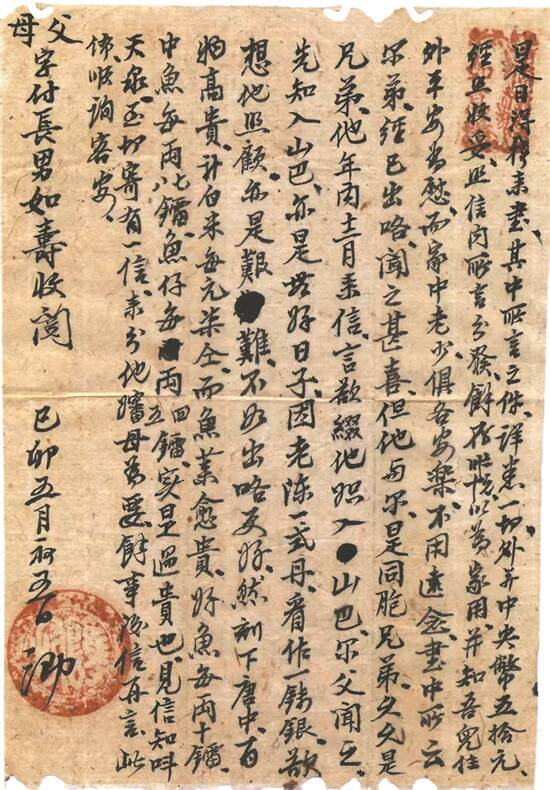 是日得接來書、其中所言之件、詳悉一切、外并中央幣五拾元、
經照收妥、照信内所言分發、餘存以為家用、并知吾兒在
外平安為慰、而家中老少俱各安樂、不用遠念、書中所云
尔弟、經已出咯、聞之甚喜、但他与尔是同胞兄弟、久久是
兄弟、他年内十二月來信、言欲綴他入山巴、尔父聞之、
先知入山巴、亦是無好日子、因老陈一式丹、看作一錢銀、欲
想他照顧、亦是艱難、不如出咯更好、然刻下唐中、百
物高貴、計白米每元柒仝、而魚菜愈貴、好魚每両十鐳、
中魚每両八七鐳、魚仔每両四五鐳、实是過貴也、見信知叫
天泉、至切寄有一信、來分他嬸母為要、餘事後信再言、此
佈、順詢客安、
父母 字付長男如壽收閲
己卯五月初五日 泐